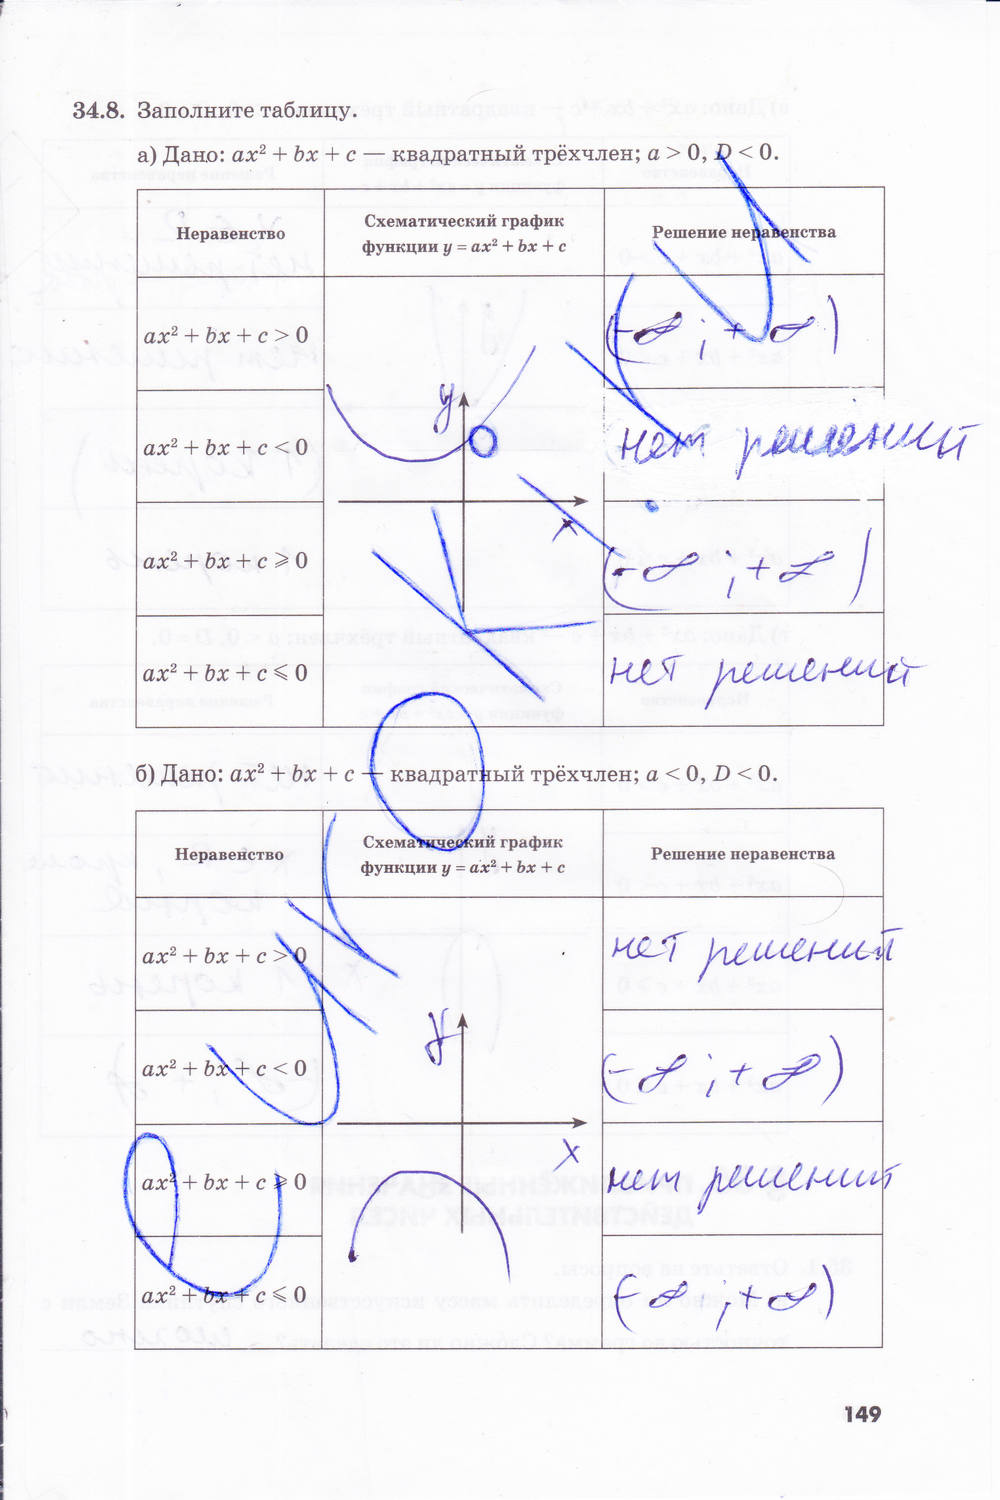 34.8. Заполните таблицу.
а) Дано: ax² + bx + c — квадратный трёхчлен; a > 0, D < 0.
Неравенство
Схематический график
функции y = ax² + bx + c
Решение неравенства
ax² + bx + c > 0
(-∞ ; + ∞)
ax² + bx + c < 0
y
0
нет решений
ax² + bx + c ⩾ 0
x
(-∞ ; +∞)
ax² + bx + c ⩽ 0
нет решений
б) Дано: ax² + bx + c — квадратный трёхчлен; a < 0, D < 0.
Неравенство
Схематический график
функции y = ax² + bx + c
Решение неравенства
ax² + bx + c > 0
нет решений
ax² + bx + c < 0
y
(-∞ ; +∞)
ax² + bx + c ⩾ 0
x
нет решений
ax² + bx + c ⩽ 0
(-∞ ; +∞)
149